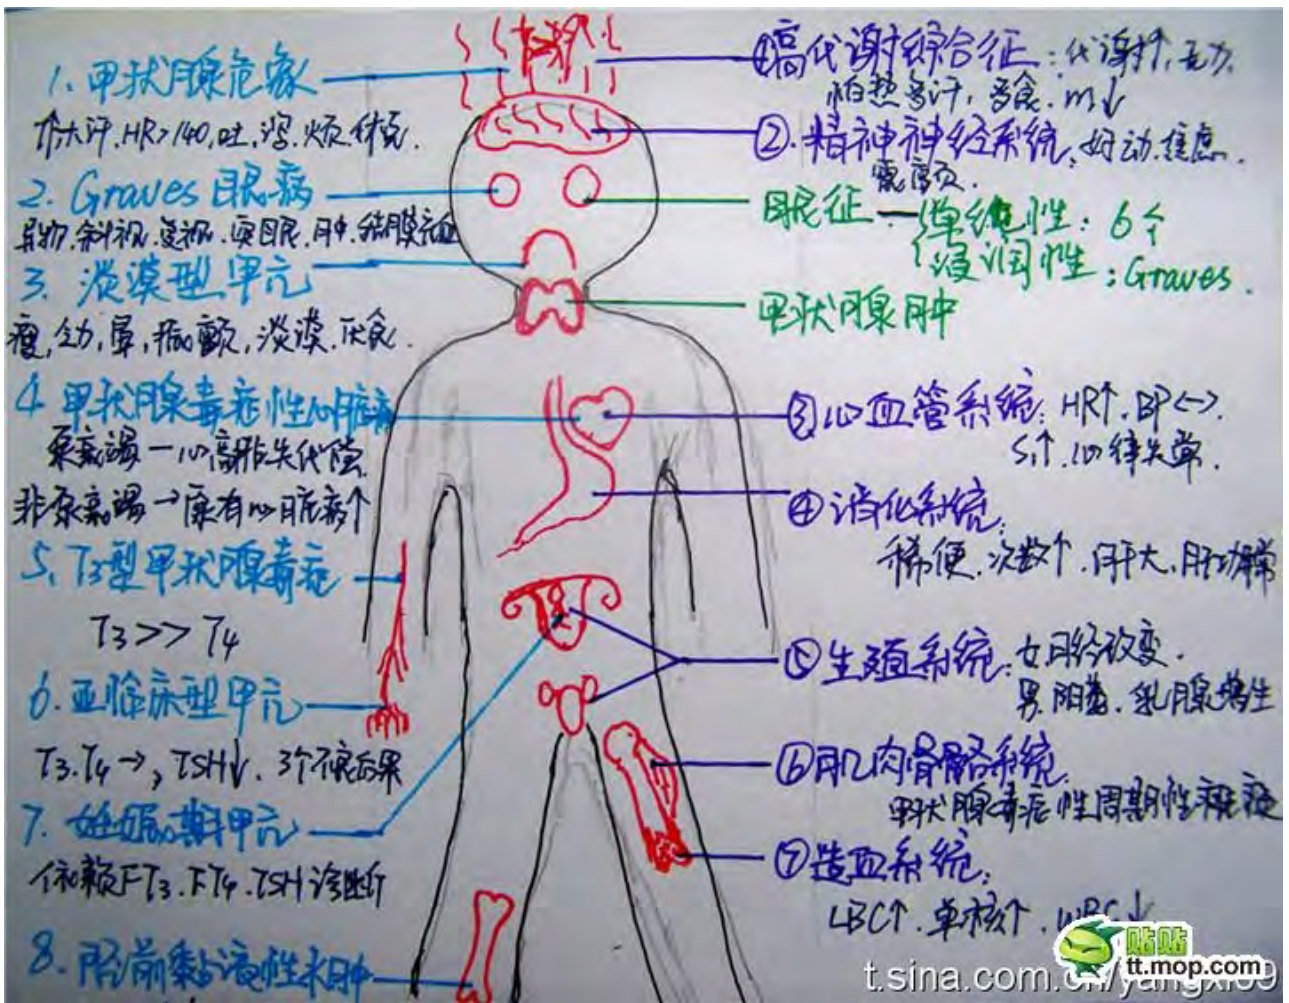 1. 甲状腺危象
↑大汗.HR>140,吐,泻.烦.休克.
2. Graves 眼病
异物.斜视.复视.突眼.肿.结膜充血
3. 淡漠型甲亢
瘦,乏力,晕,震颤,淡漠.厌食.
4 甲状腺毒症性心脏病
泵衰竭—心高排失代偿
非泵衰竭→原有心脏病↑
5. T3型甲状腺毒症
T3>>T4
6. 亚临床型甲亢
T3.T4→, TSH↓. 3个不良后果
7. 妊娠期甲亢
依赖FT3.FT4.TSH诊断
8. 胫前黏液性水肿
①高代谢综合征:代谢↑,乏力.
怕热多汗,多食.m↓
②.精神神经系统:好动.焦虑.
震颤.
眼征—{单纯性:6个
{浸润性:Graves.
甲状腺肿
③心血管系统:HR↑.BP<->.
S1↑.心律失常.
④消化系统:
稀便.次数↑.肝大.肝功异常
⑤生殖系统:女月经改变.
男.阳萎.乳腺增生
⑥肌肉骨骼系统:
甲状腺毒症性周期性瘫痪
⑦造血系统:
LBC↑.单核↑.WBC↓
贴贴
tt.mop.com
t.sina.com.cn/yangxi89